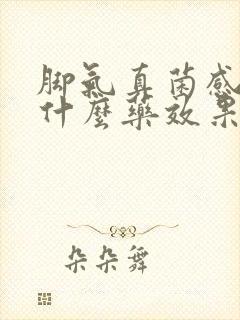 脚氣真菌感
什麼藥效果
朵朵舞